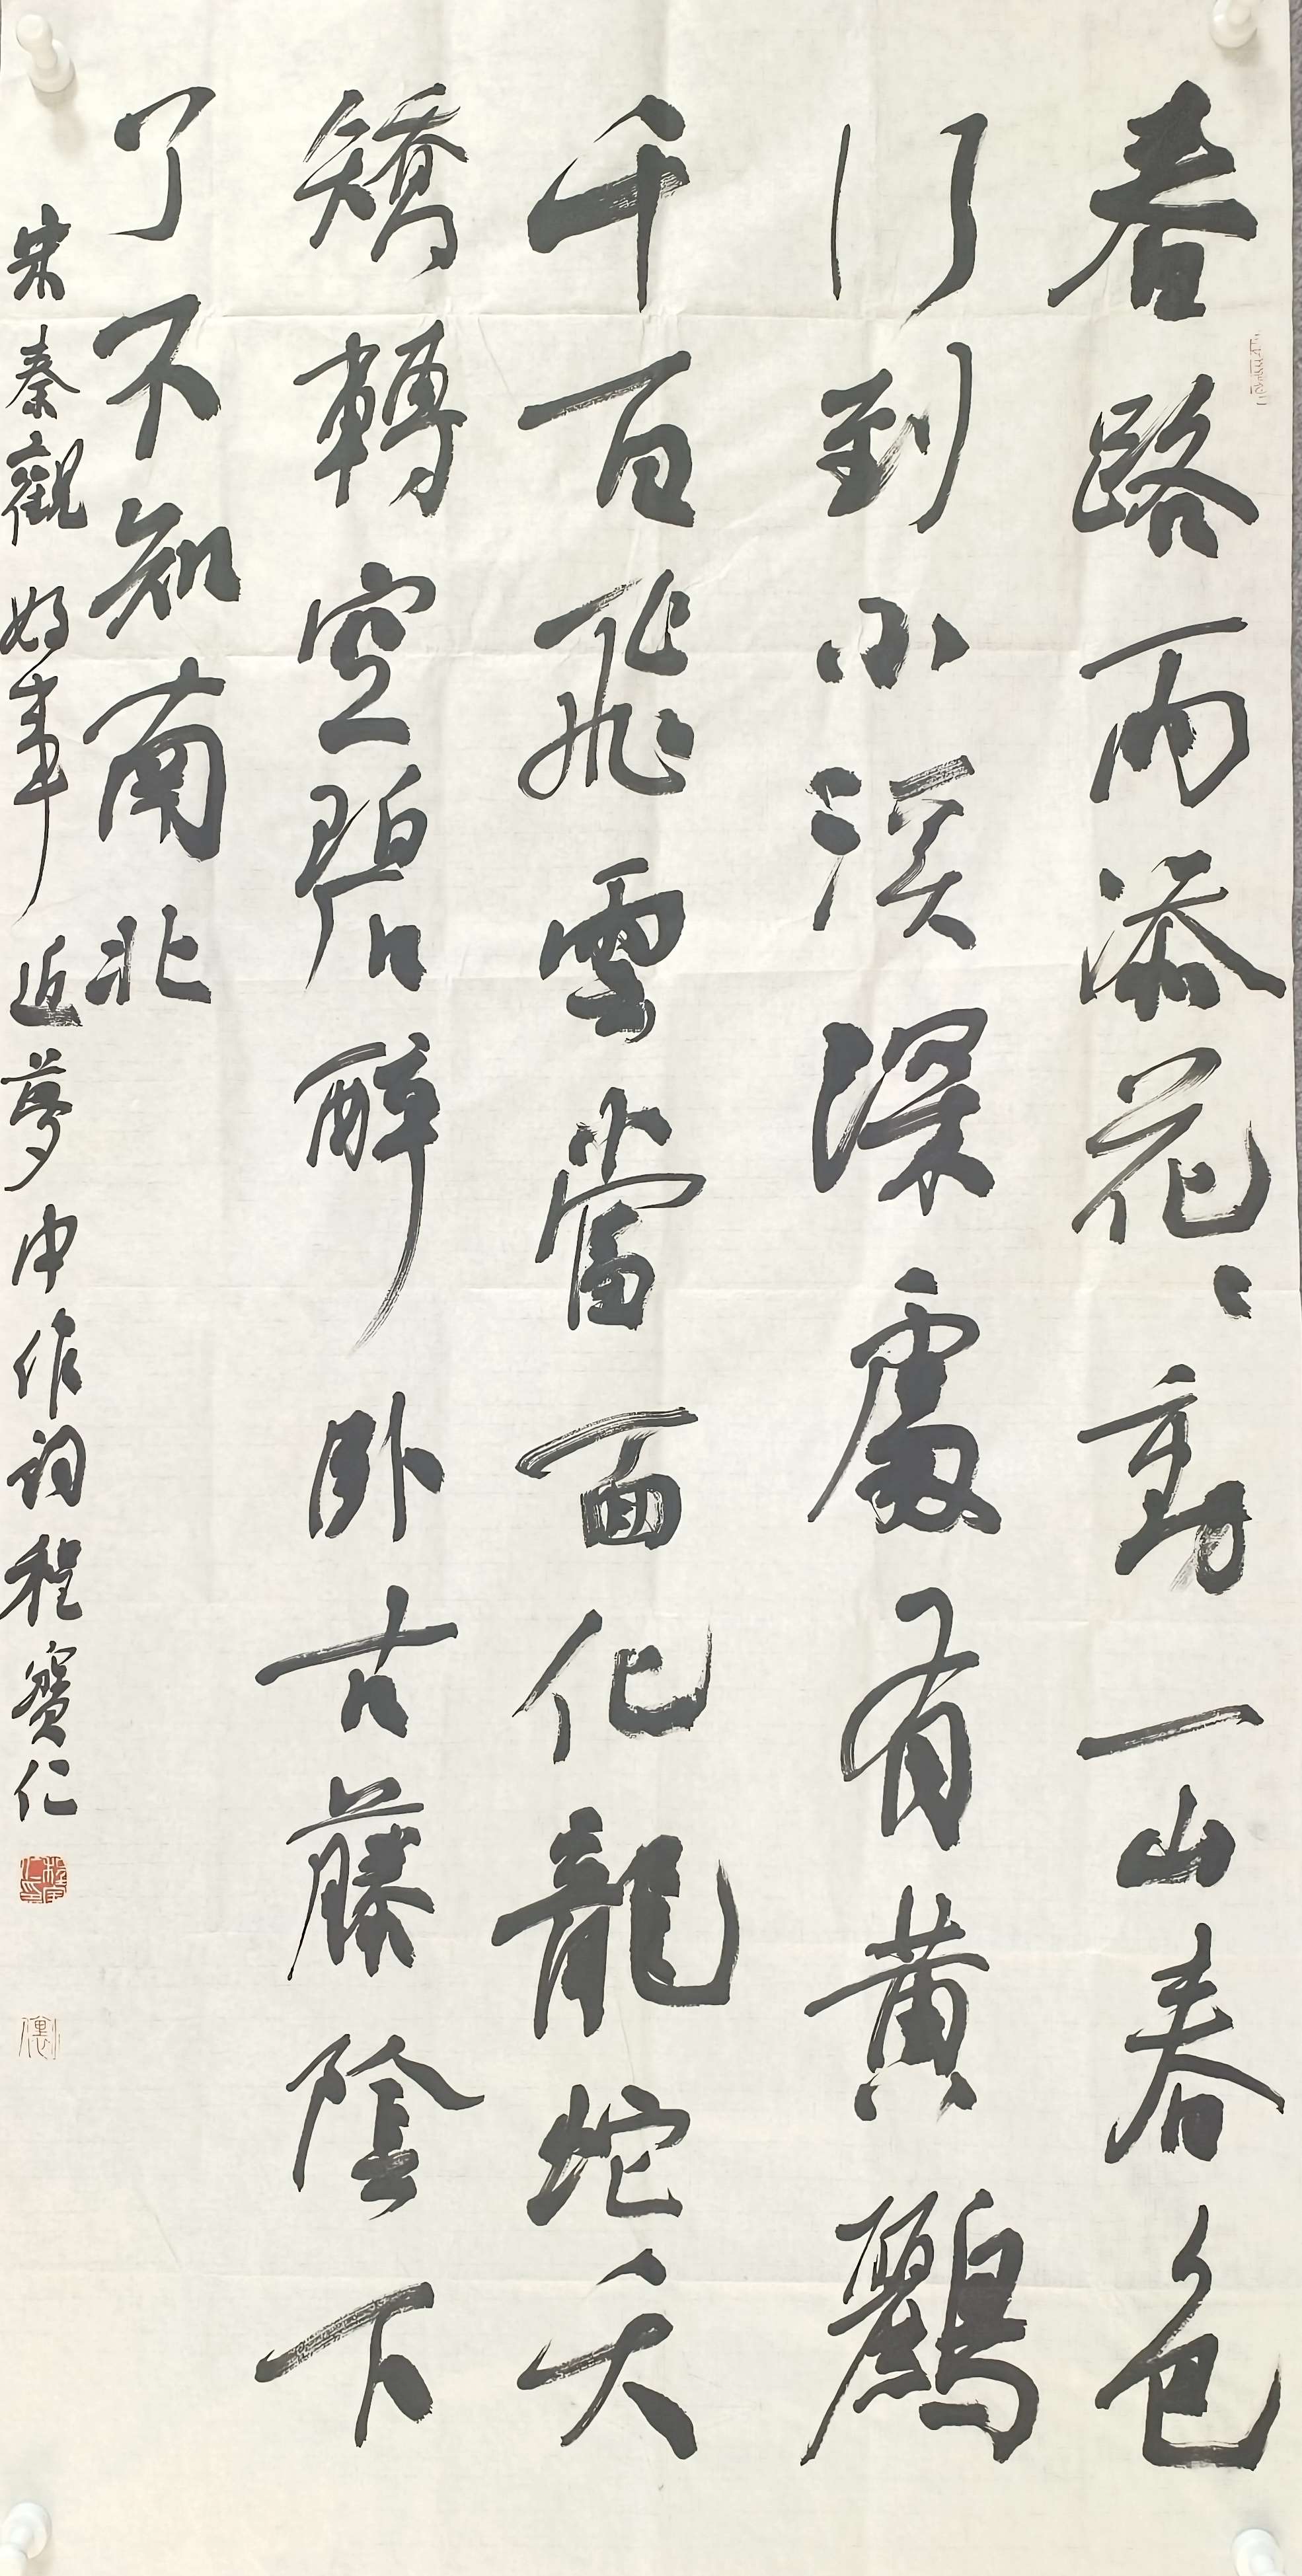 春路雨添花〻動一山春色
行到小溪深處有黄鸝
千百飛雲當面化龍蛇夭
矯轉空碧醉卧古藤陰下
了不知南北
宋秦觀好事近夢中作詞程寶仁